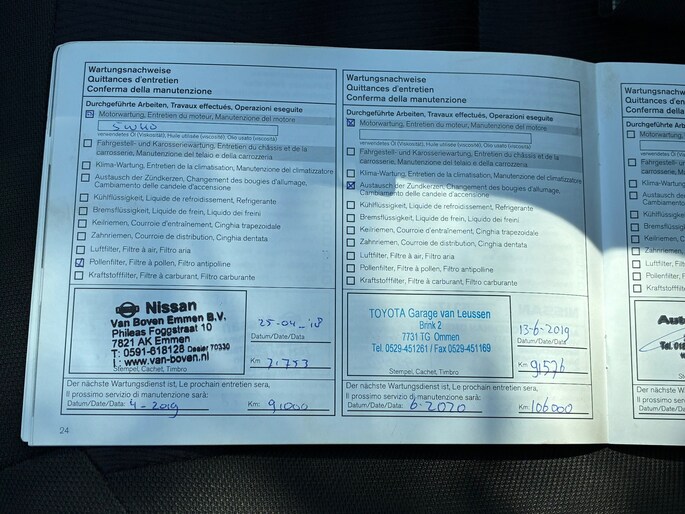 Wartungsnachweise
Quittances d'entretien
Conferma della manutenzione
Durchgeführte Arbeiten, Travaux effectués, Operazioni eseguite
Motorwartung, Entretien du moteur, Manutenzione del motore
5W40
verwendetes Öl (Viskosität), Huile utilisée (viscosité), Olio usato (viscosità)
Fahrgestell- und Karosseriewartung, Entretien du châssis et de la
carrosserie, Manutenzione del telaio e della carrozzeria
Klima-Wartung, Entretien de la climatisation, Manutenzione del climatizzatore
Austausch der Zündkerzen, Changement des bougies d'allumage,
Cambiamento delle candele d'accensione
Kühlflüssigkeit, Liquide de refroidissement, Refrigerante
Bremsflüssigkeit, Liquide de frein, Liquido dei freini
Keilriemen, Courroie d'entraînement, Cinghia trapezoidale
Zahnriemen, Courroie de distribution, Cinghia dentata
Luftfilter, Filtre à air, Filtro aria
Pollenfilter, Filtre à pollen, Filtro antipolline
Kraftstofffilter, Filtre à carburant, Filtro carburante
Nissan
Van Boven Emmen B.V.
Phileas Foggstraat 10
7821 AK Emmen
T: 0591-618128 Dealer 70330
I: www.van-boven.nl
Stempel, Cachet, Timbro
25-04-'18
Datum/Date/Data
Km: 71.753
Der nächste Wartungsdienst ist, Le prochain entretien sera,
Il prossimo servizio di manutenzione sarà:
Datum/Date/Data: 4-2019 Km: 91000
24
Wartungsnachweise
Quittances d'entretien
Conferma della manutenzione
Durchgeführte Arbeiten, Travaux effectués, Operazioni eseguite
Motorwartung, Entretien du moteur, Manutenzione del motore
verwendetes Öl (Viskosität), Huile utilisée (viscosité), Olio usato (viscosità)
Fahrgestell- und Karosseriewartung, Entretien du châssis et de la
carrosserie, Manutenzione del telaio e della carrozzeria
Klima-Wartung, Entretien de la climatisation, Manutenzione del climatizzatore
Austausch der Zündkerzen, Changement des bougies d'allumage,
Cambiamento delle candele d'accensione
Kühlflüssigkeit, Liquide de refroidissement, Refrigerante
Bremsflüssigkeit, Liquide de frein, Liquido dei freini
Keilriemen, Courroie d'entraînement, Cinghia trapezoidale
Zahnriemen, Courroie de distribution, Cinghia dentata
Luftfilter, Filtre à air, Filtro aria
Pollenfilter, Filtre à pollen, Filtro antipolline
Kraftstofffilter, Filtre à carburant, Filtro carburante
TOYOTA Garage van Leussen
Brink 2
7731 TG Ommen
Tel. 0529-451261 / Fax 0529-451169
Stempel, Cachet, Timbro
13-6-2019
Datum/Date/Data
Km: 91576
Der nächste Wartungsdienst ist, Le prochain entretien sera,
Il prossimo servizio di manutenzione sarà:
Datum/Date/Data: 6-2020 Km: 106000
Wartungsnachw
Quittances d'en
Conferma della
Durchgeführte Arb
Motorwartung, E
verwendetes Öl (Visko
Fahrgestell- und
carrosserie, Man
Klima-Wartung, E
Austausch der Z
Cambiamento d
Kühlflüssigkeit,
Bremsflüssigkeit
Keilriemen, Cou
Zahnriemen, Co
Luftfilter, Filtre à
Pollenfilter, Filtre
Kraftstofffilter, F
Der nächste Wartu
Il prossimo servizio
Datum/Date/Data: